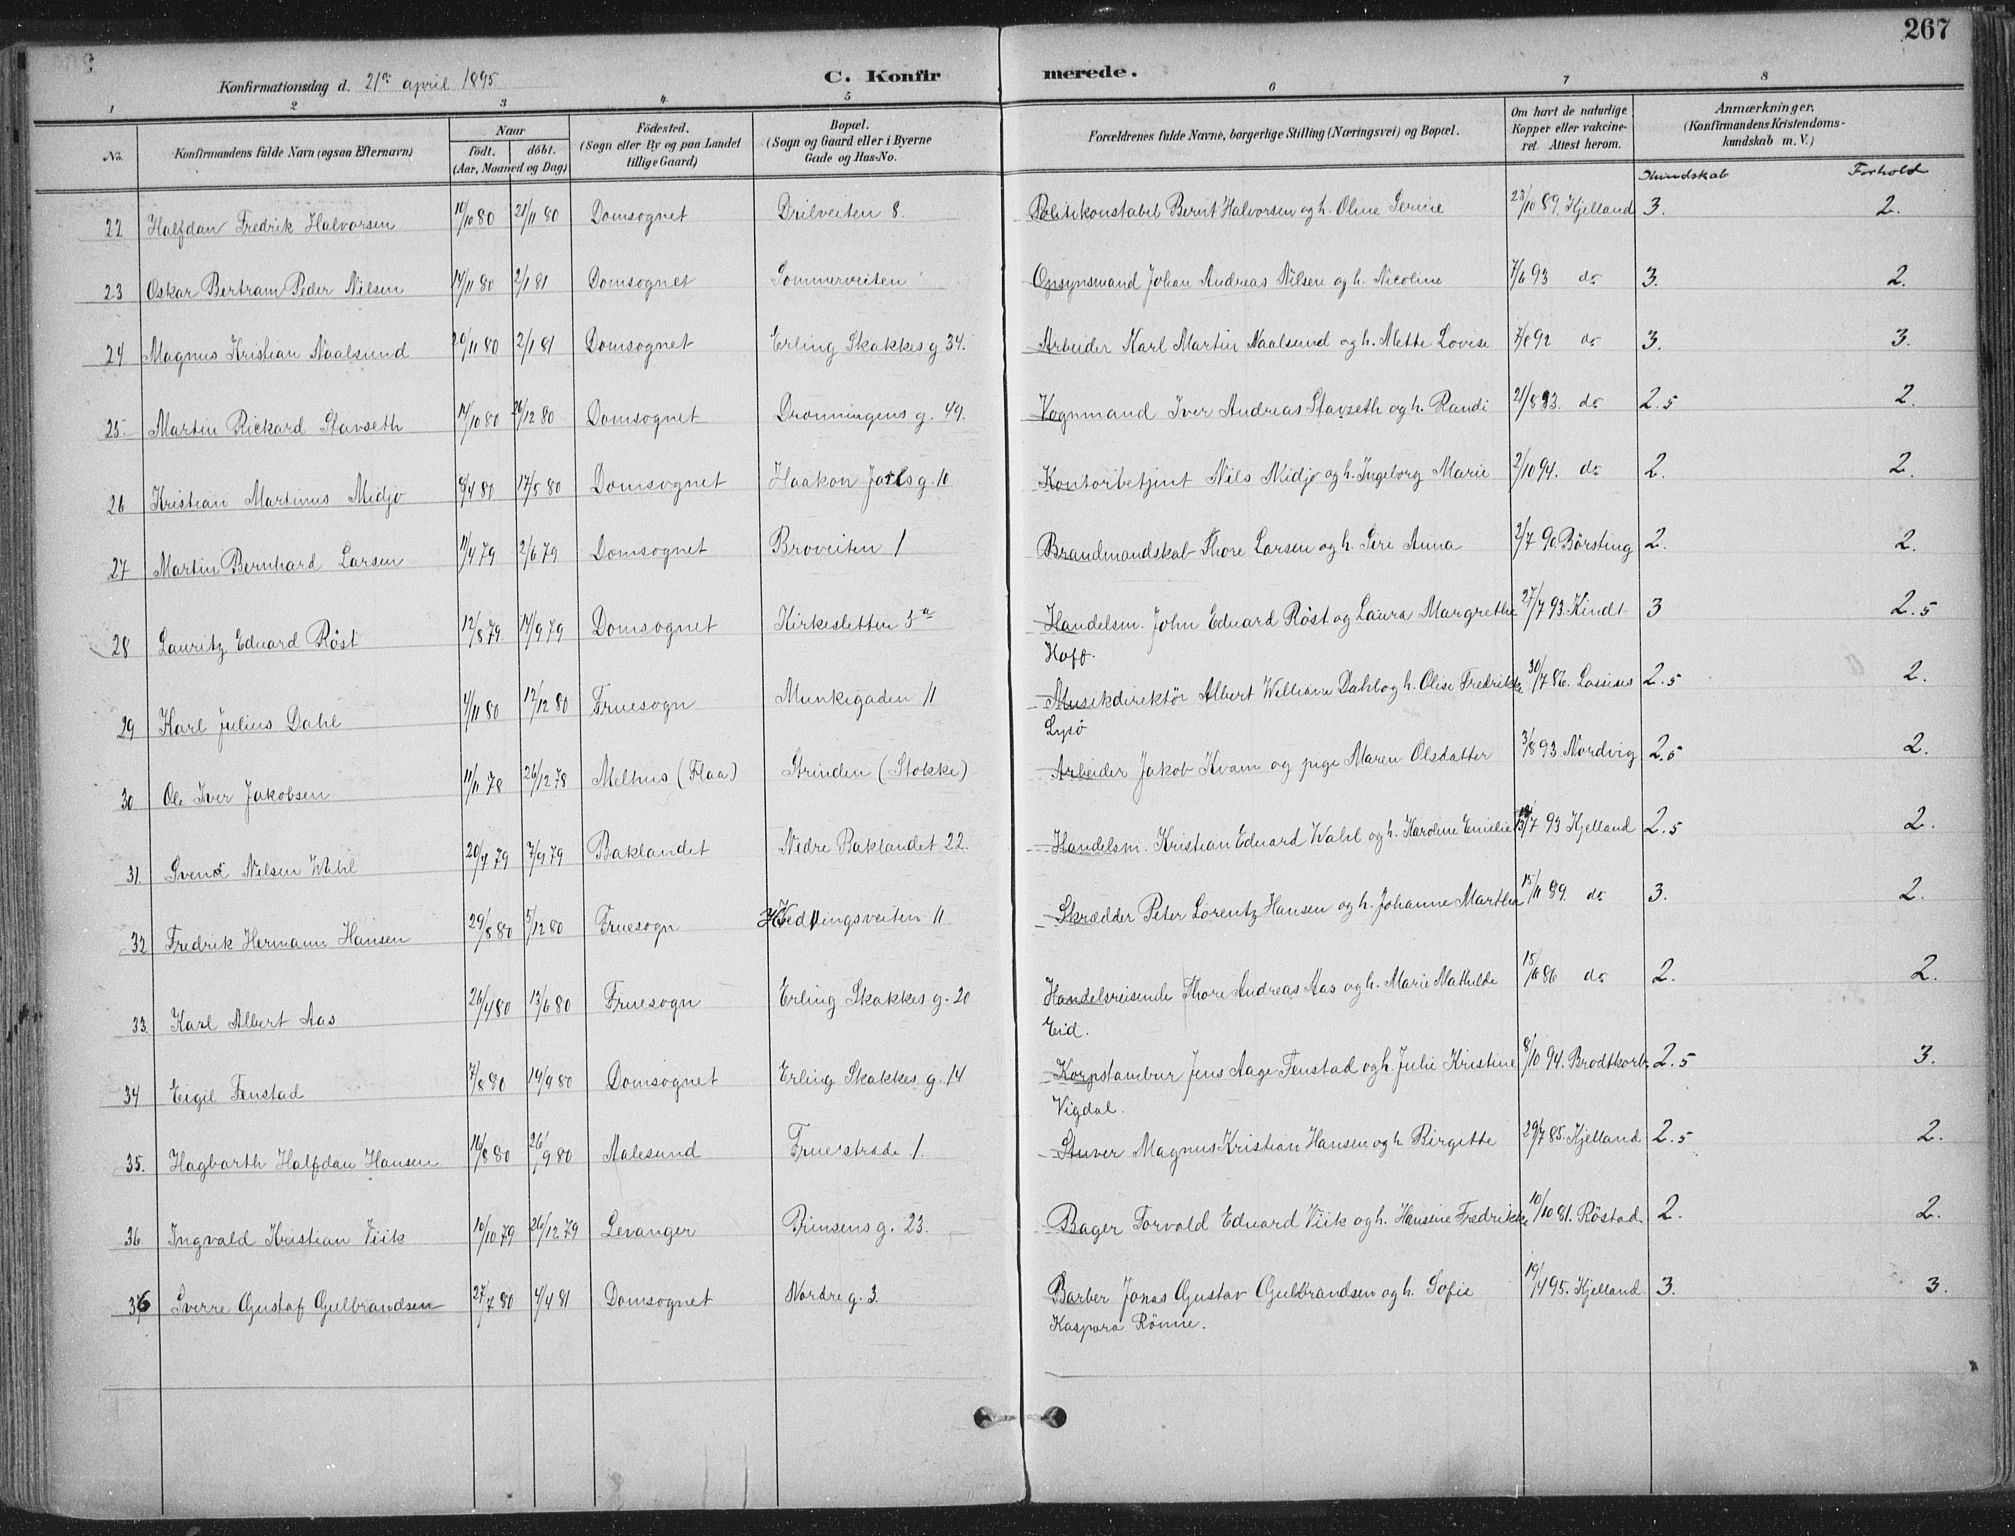 267
Konfirmationsdag d. 21de april 1895
C. Konfirmerede.
1 2 3 4 5 6 7 8
No. Konfirmandens fulde Navn (ogsaa Efternavn) Naar födt. döbt. (Aar, Maaned og Dag) Födested. (Sogn eller By og paa Landet tillige Gaard) Bopæl. (Sogn og Gaard eller i Byerne Gade og Hus-No. Forældrenes fulde Navne, borgerlige Stilling (Næringsvei) og Bopæl. Om havt de naturlige Kopper eller vakcineret. Attest herom. Anmærkninger. (Konfirmandens Kristendomskundskab m. V.)
Kundskab Forhold
22 Halfdan Fredrik Halvorsen 11/10 80 21/11 80 Domsognet Drilveiten 8. Politikonstabel Bernt Halvorsen og h. Oline 23/10 89. Kjelland 3. 2.
23 Oskar Bertram Peder Nilsen 14/11 80 2/1 81 Domsognet Sommerveiten Opsynsmand Johan Andreas Nilsen og h. Nicoline 7/6 93 do 3. 2.
24 Magnus Kristian Naalsund 29/11 80 2/1 81 Domsognet Erling Skakkes g 34. Arbeider Karl Martin Naalsund og h. Mette Lovise 7/8 92 do 3. 3.
25. Martin Rickard Stavseth 14/10 80 26/12 80 Domsognet Dronningens g. 49. Vognmand Iver Andreas Stavseth og h. Randi 21/8 83. do 2.5 2.
26 Kristian Martinus Midjo 8/4 80 17/5 80 Domsognet Haakon Jarls g. 10 Kontorbetjent Nils Midjo og h. Ingeborg Marie 2/10 94. do 2. 2.
27 Martin Bernhard Larsen 11/4 79 2/6 79 Domsognet Broveiten 1 Brandmandskab Thore Larsen og h. Siri Anna 2/7 90. Børsting 2. 2.
28 Lauritz Eduard Røst 12/8 79. 14/9 79 Domsognet Kirkesletten 5a Handelsm. John Eduard Røst og Laura Margrethe 27/7 93. Kindt 3 2.5
Hoff.
29 Karl Julius Dahl 1/11 80 12/12 80 Fruesogn Munkegaden 11 Musikdirektör Albert William Dahl og h. Olise Fredrikke 30/7 86. Lossius 2.5 2.
Lysö
30 Ole Iver Jakobsen 11/11 78 26/12 78 Melhus (Flaa) Strinden (Stokke) Arbeider Jakob Kvam og pige Maren Olsdatter 3/8 93 Nordvig 2.5 2.
31. Svend Nilsen Wahl 20/7 79 7/9 79 Baklandet Nedre Baklandet 22. Handelsm. Kristian Eduard Wahl og h. Karoline Emilie 13/7 93 Kjelland 2.5 2.
32 Fredrik Hermann Hansen 29/8 80 5/12 80 Fruesogn Hedvingsveiten 11 Skrædder Peter Lorentz Hansen og h. Johanne Marthe 15/11 89. do 3. 2.
33. Karl Albert Aas 26/4 80 13/6 80 Fruesogn Erling Skakkes g. 20 Handelsreisende Thore Andreas Aas og h. Marie Mathilde 15/6 86 do 2. 2.
Eid.
34 Eigil Fenstad 7/8 80 19/9 80 Domsognet Erling Skakkes g. 14 Korpstambur Jens Aage Fenstad og h. Julie Kristine 8/10 94. Brodtkorb. 2.5 3.
Vigdal.
35. Hagbarth Halfdan Hansen 16/8 80 26/9 80 Aalesund Fruerstræde 1. Stuver Magnus Kristian Hansen og h. Birgitte 29/7 85. Kjelland 2.5 2.
36. Ingvald Kristian Viik 10/10 79 26/12 79 Levanger Prinsens g. 23. Bager Torvald Eduard Viik og h. Hansine Fredrikke 10/10 81. Röstad 2. 2.
36 Sverre Gustaf Gulbrandsen 27/7 80 4/4 81 Domsognet Nordre g. 3. Barber Jonas Gustav Gulbrandsen og h. Sofie 19/4 95. Kjelland 3. 3.
Kaspara Rönne.